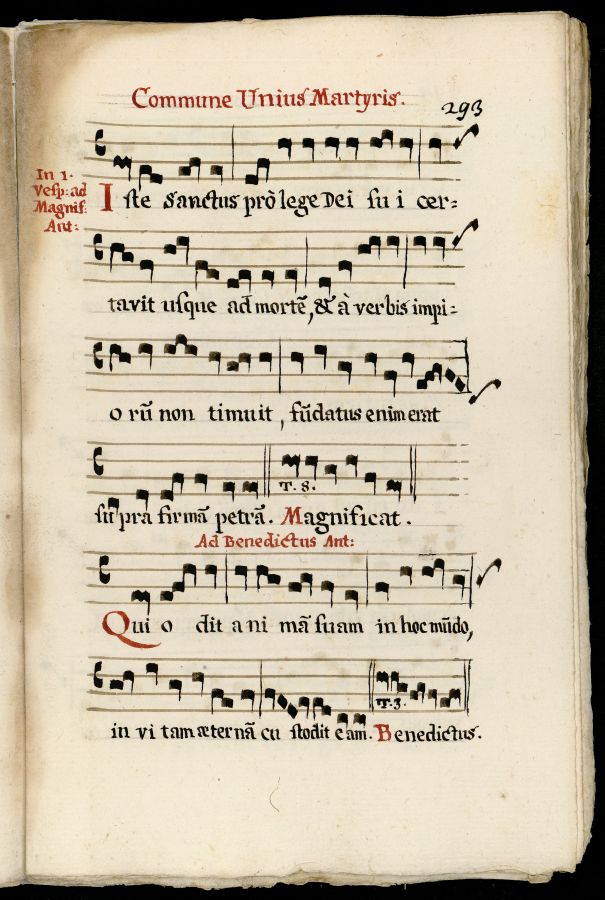 Commune Unius Martyris.
293
In 1.
Vesp: ad
Magnif:
Ant:
Iste Sanctus prò lege Dei sui cer=
tavit usque ad mortē, & à verbis impi=
orū non timuit, fūdatus enim erat
supra firmā petrā. Magnificat.
T. 8.
Ad Benedictus Ant:
Qui odit animā suam in hoc mūdo,
in vitam æternā custodit eam. Benedictus.
T. 3.